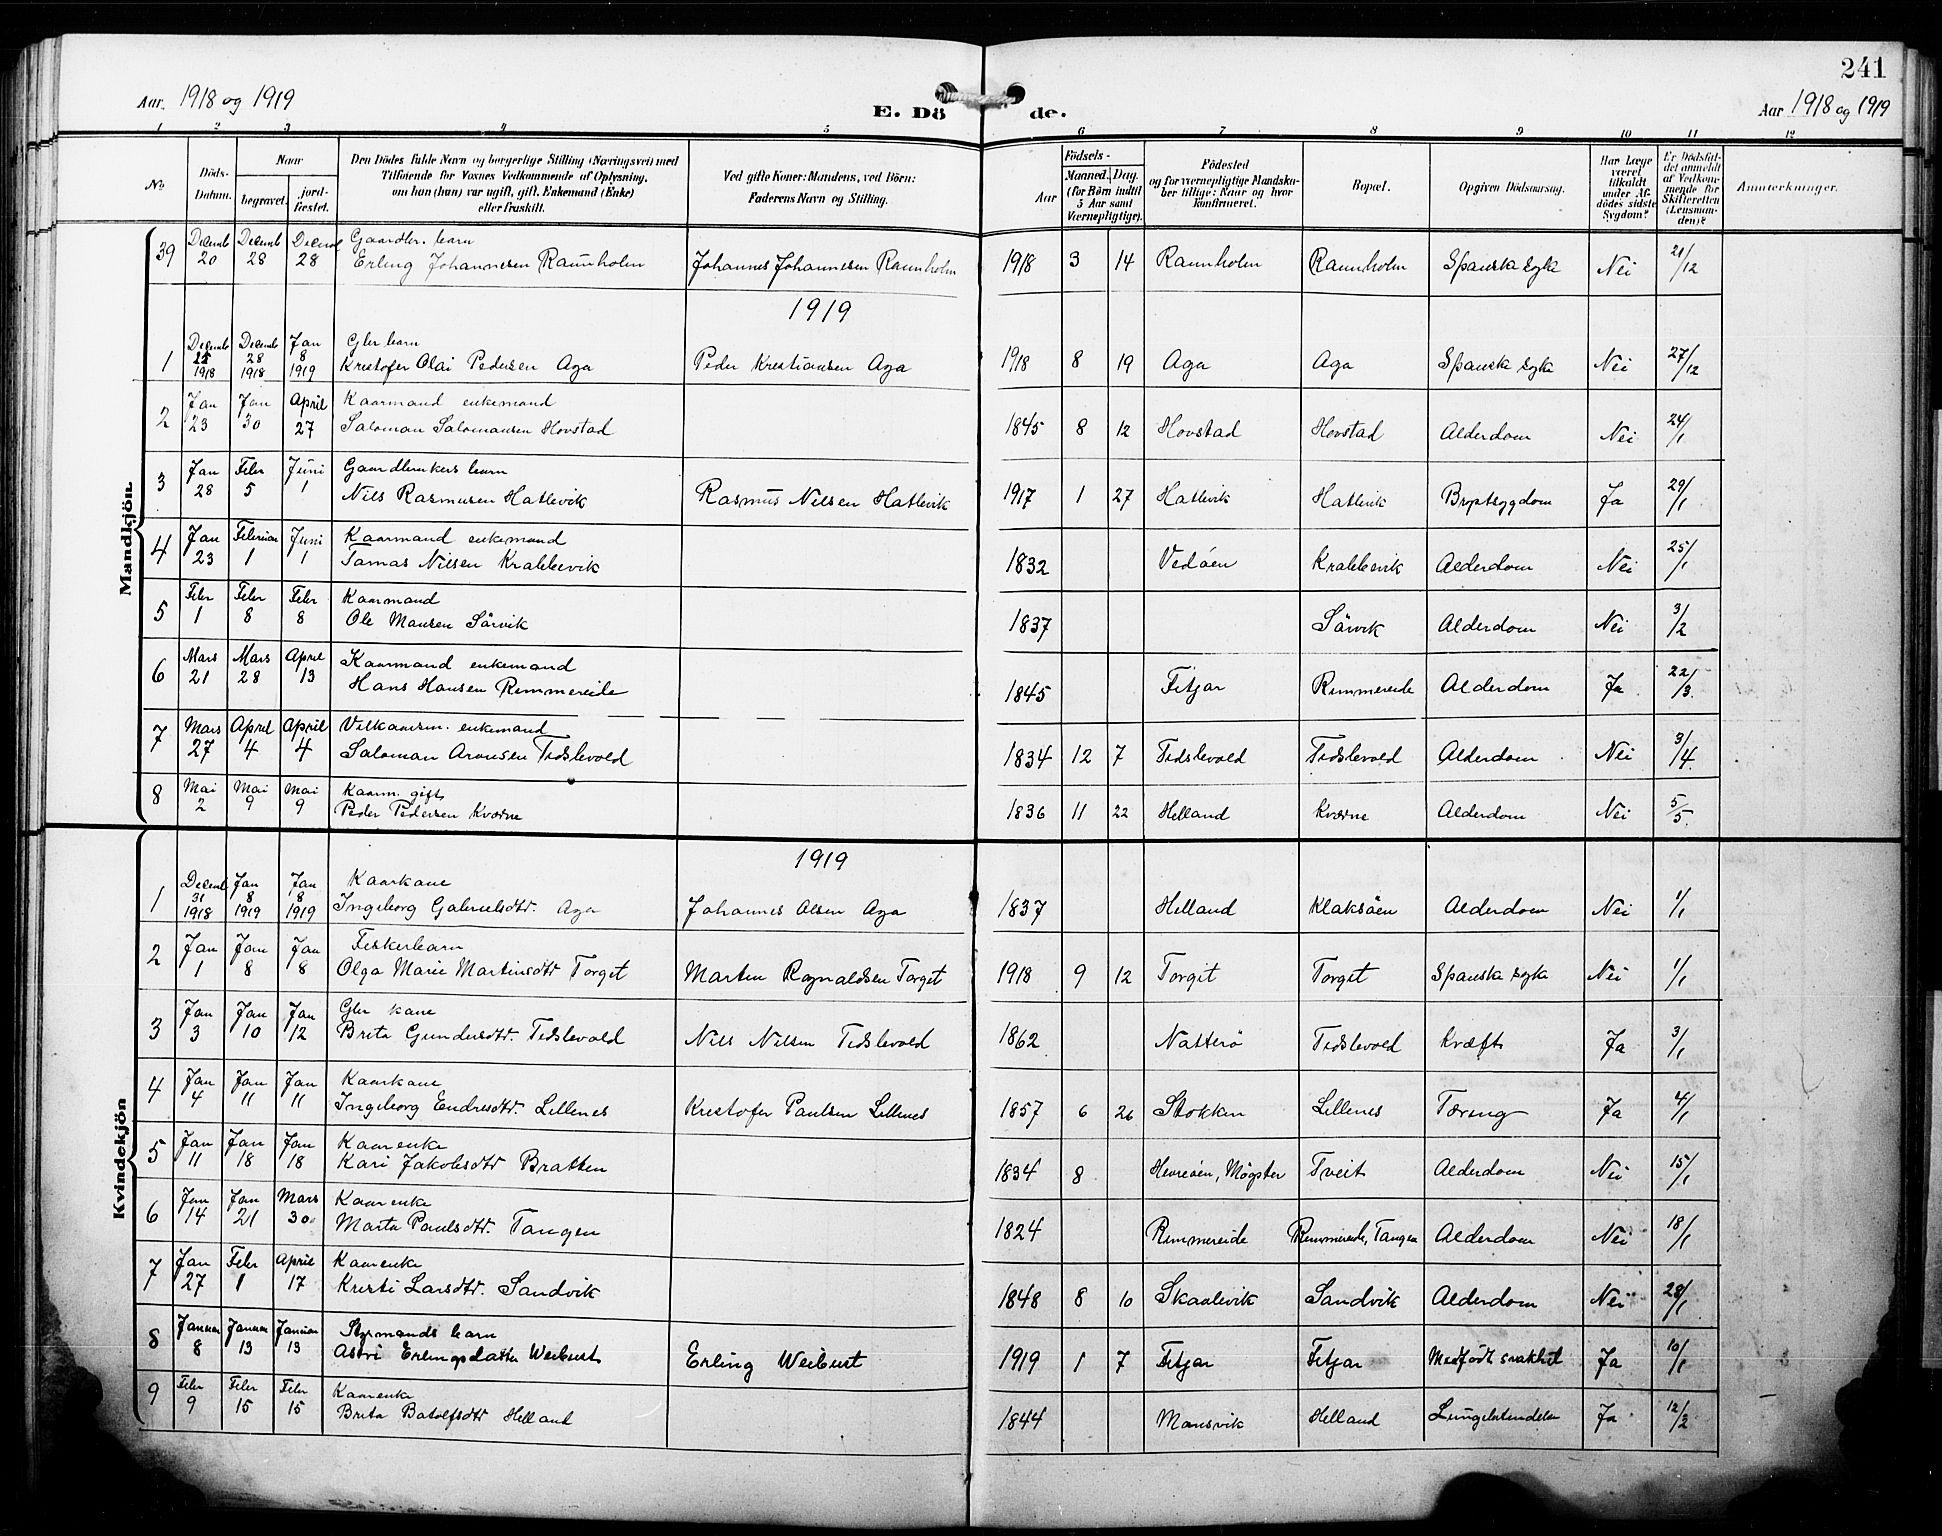 241
Aar. 1918 og 1919
E. Dö de.
Aar 1918 og 1919
1 2 3 4 5 6 7 8 9 10 11 12
No.
Döds-Datum.
Naar
begravet.
jord-fæstet.
Den Dödes fulde Navn og borgerlige Stilling (Næringsvei) med
Tilföiende for Voxnes Vedkommende af Oplysning,
om han (hun) var ugift, gift, Enkemand (Enke)
eller fraskilt.
Ved gifte Koner: Mandens, ved Börn:
Faderens Navn og Stilling.
Födsels-
Aar
Maaned. Dag.
(for Börn indtil
5 Aar samt
Værnepligtige).
Födested
og for værnepligtige Mandska-
ber tillige: Naar og hvor
konfirmeret.
Bopæl.
Opgiven Dödsaarsag.
Har Læge
været
tilkaldt
under Af-
dödes sidste
Sygdom?
Er Dödsfal-
det anmeldt
af Vedkom-
mende for
Skifteretten
(Lensman-
den)?
Anmærkninger.
Mandkjön.
39 Decemb 20 Decemb 28 Decemb 28 Gaardbr. barn
Erling Johannesen Raunholm Johannes Johannesen Raunholm 1918 3 14 Raunholm Raunholm Spanska syka Nei 21/12
1919
1 Decemb 25 1918 Decemb 28 1918 Jan 8 1919 Gbr barn
Kristofer Olai Pedersen Aga Peder Kristiansen Aga 1918 8 19 Aga Aga Spanska syka Nei 27/12
2 Jan 23 Jan 30 April 27 Kaarmand enkemand
Salomon Salomonsen Hovstad 1845 8 12 Hovstad Hovstad Alderdom Nei 24/1
3 Jan 28 Febr 5 Juni 1 Gaardbrukers barn
Nils Rasmusen Hatlevik Rasmus Nilsen Hatlevik 1917 1 27 Hatlevik Hatlevik Brystsygdom Ja 29/1
4 Jan 23 Februar 1 Juni 1 Kaarmand enkemand
Tomas Nilsen Krabbevik 1832 Vedöen Krabbevik Alderdom Nei 25/1
5 Febr 1 Febr 8 Febr 8 Kaarmand
Ole Monsen Sörvik 1837 Sörvik Alderdom Nei 3/2
6 Mars 21 Mars 28 April 13 Kaarmand enkemand
Hans Hansen Rimmereide 1845 Fitjar Rimmereide Alderdom Ja 22/3
7 Mars 27 April 4 April 4 Vilkaarsm. enkemand
Salomon Aronsen Tislevold 1834 12 7 Tislevold Tislevold Alderdom Nei 3/4
8 Mai 2 Mai 9 Mai 9 Kaarm. gift
Peder Pedersen Kværne 1836 11 22 Helland Kværne Alderdom Nei 5/5
Kvindekjön
1919
1 Decemb 31 1918 Jan 8 1919 Jan 8 1919 Kaarkane
Ingeborg Gabrielsdtr. Aga Johannes Olsen Aga 1837 Helland Klaksöen Alderdom Nei 1/1
2 Jan 1 Jan 8 Jan 8 Fiskerbarn
Olga Marie Martinsdtr Torget Martin Ragnaldsen Torget 1918 9 12 Torget Torget Spanska syka Nei 1/1
3 Jan 3 Jan 10 Jan 12 Gbr kane
Brita Gundersdtr. Tislevold Nils Nilsen Tislevold 1862 Natterö Tislevold Kræft Ja 3/1
4 Jan 4 Jan 11 Jan 11 Kaarkane
Ingeborg Endresdtr. Lillenes Kristofer Paulsen Lillenes 1857 6 26 Stokken Lillenes Tæring Ja 4/1
5 Jan 11 Jan 18 Jan 18 Kaarenke
Kari Jakobsdtr Bratten 1834 8 Heveröen, Møgster Tveit Alderdom Nei 15/1
6 Jan 14 Jan 21 Mars 30 Kaarenke
Marta Paulsdtr. Tangen 1824 Rimmereide Rimmereide, Tangen Alderdom Nei 18/1
7 Jan 27 Febr 1 April 17 Kaarenke
Kristi Larsdtr. Sandvik 1848 8 10 Skaalevik Sandvik Alderdom Nei 28/1
8 Januar 8 Januar 13 Januar 13 Styrmands barn
Astri Erlingsdatter Weibust Erling Weibust 1919 1 7 Fitjar Fitjar Medfödt svakhet Ja 10/1
9 Febr 9 Febr 15 Febr 15 Kaarenke
Brita Botolfsdtr Helland 1844 Mansvik Helland Lungebetendelse Ja 12/2